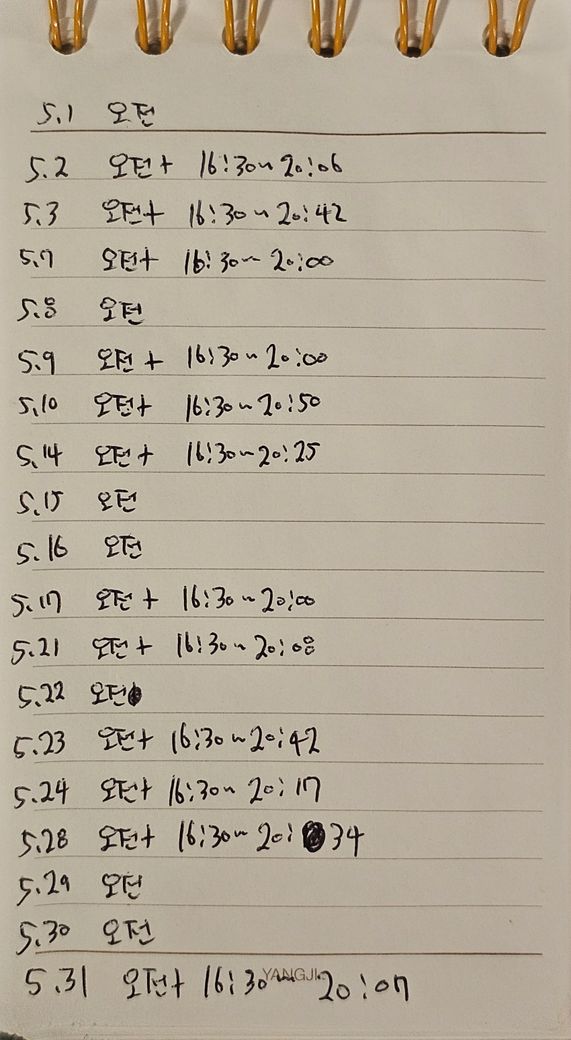 5.1 오전
5.2 오전+ 16:30~20:06
5.3 오전+ 16:30~20:42
5.7 오전+ 16:30~20:00
5.8 오전
5.9 오전+ 16:30~20:00
5.10 오전+ 16:30~20:50
5.14 오전+ 16:30~20:25
5.15 오전
5.16 오전
5.17 오전+ 16:30~20:00
5.21 오전+ 16:30~20:08
5.22 오전
5.23 오전+ 16:30~20:42
5.24 오전+ 16:30~20:17
5.28 오전+ 16:30~20:34
5.29 오전
5.30 오전
5.31 오전+ 16:30~20:07
YANGJI